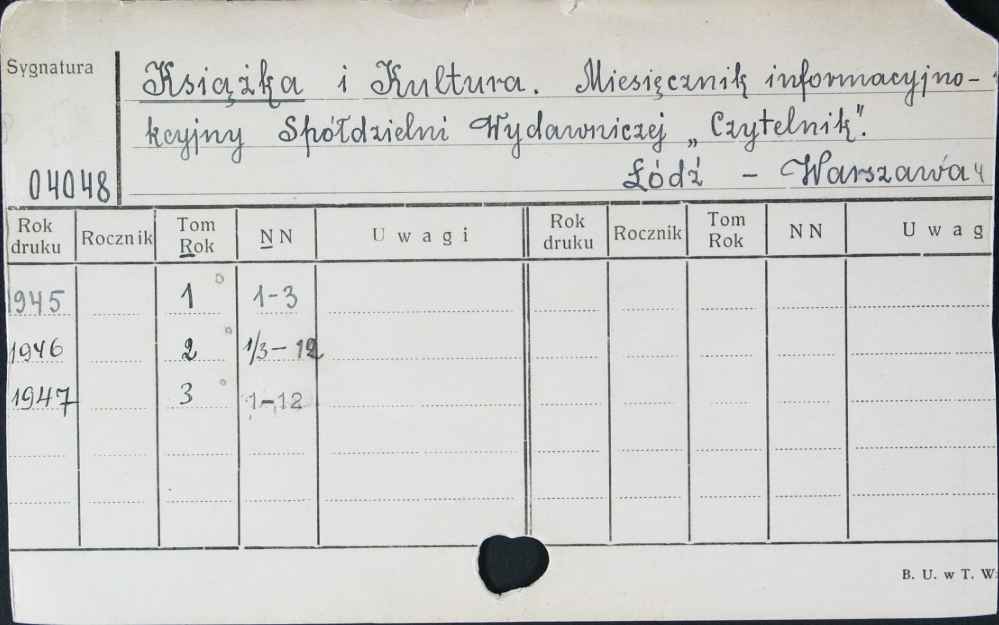 Sygnatura
Książka i Kultura. Miesięcznik informacyjno-
kcyjny Spółdzielni Wydawniczej „Czytelnik".
04048
Łódź - Warszawa
Rok druku Rocznik Tom Rok NN Uwagi Rok druku Rocznik Tom Rok NN Uwag
1945 1 1-3
1946 2 1/3-12
1947 3 1-12
B. U. w T. W